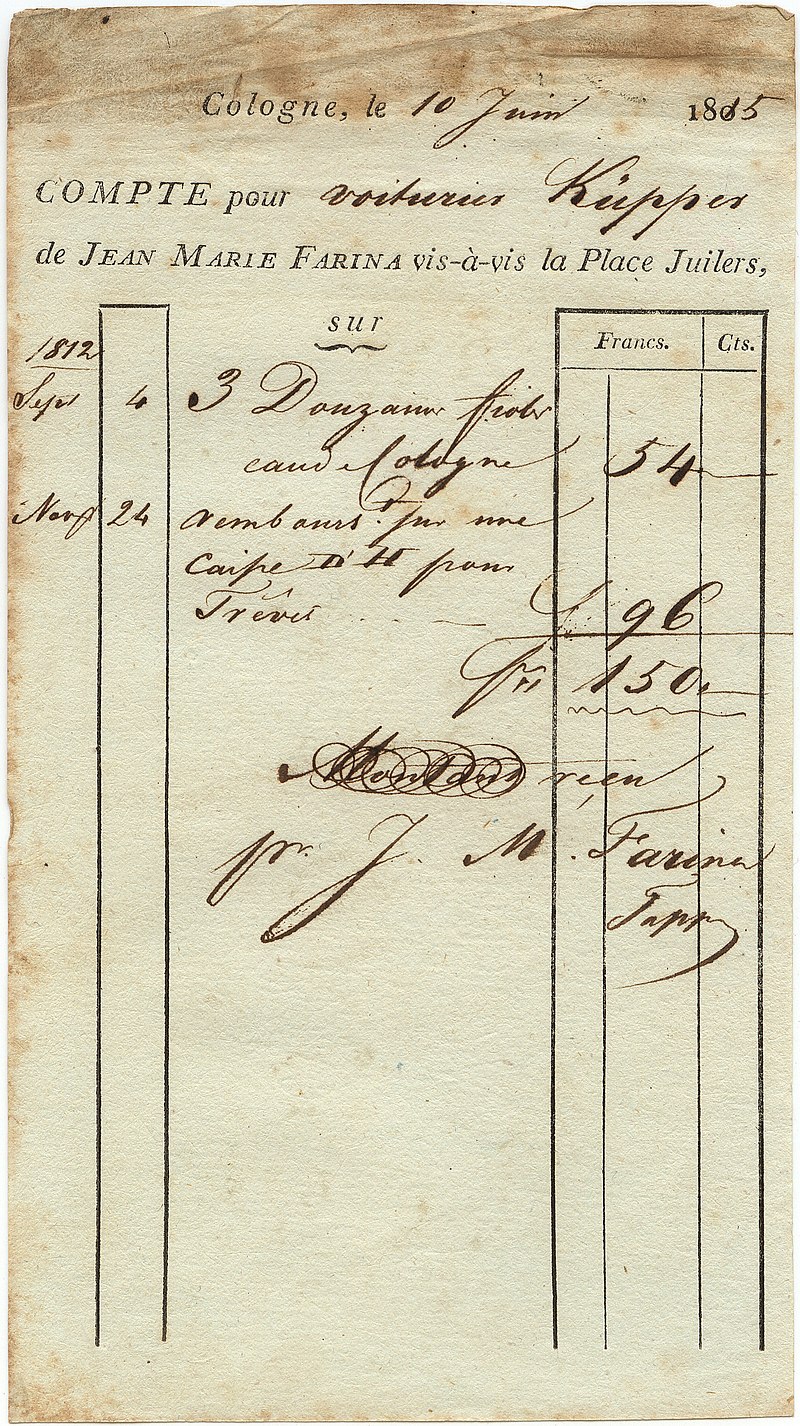 Cologne, le 10 Juin 1815
COMPTE pour voiturier Küpper
de JEAN MARIE FARINA vis-à-vis la Place Juilers,
sur
Francs. Cts.
1812
Sepr 4 3 Douzaine fioles
eau de Cologne 54
24 rembours. sur une
Caisse pour
Trêves 96
150
Montant reçu
pr. J. M. Farina